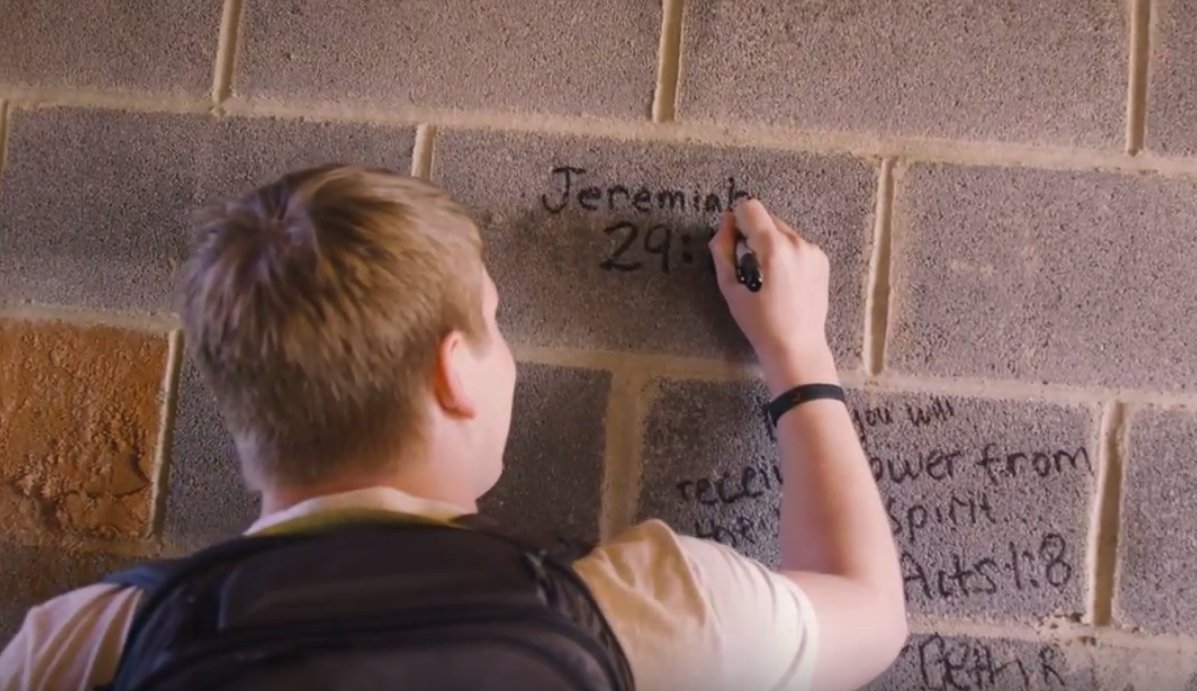 Jeremiah
29:
you will
power from
the spirit
Acts 1:8